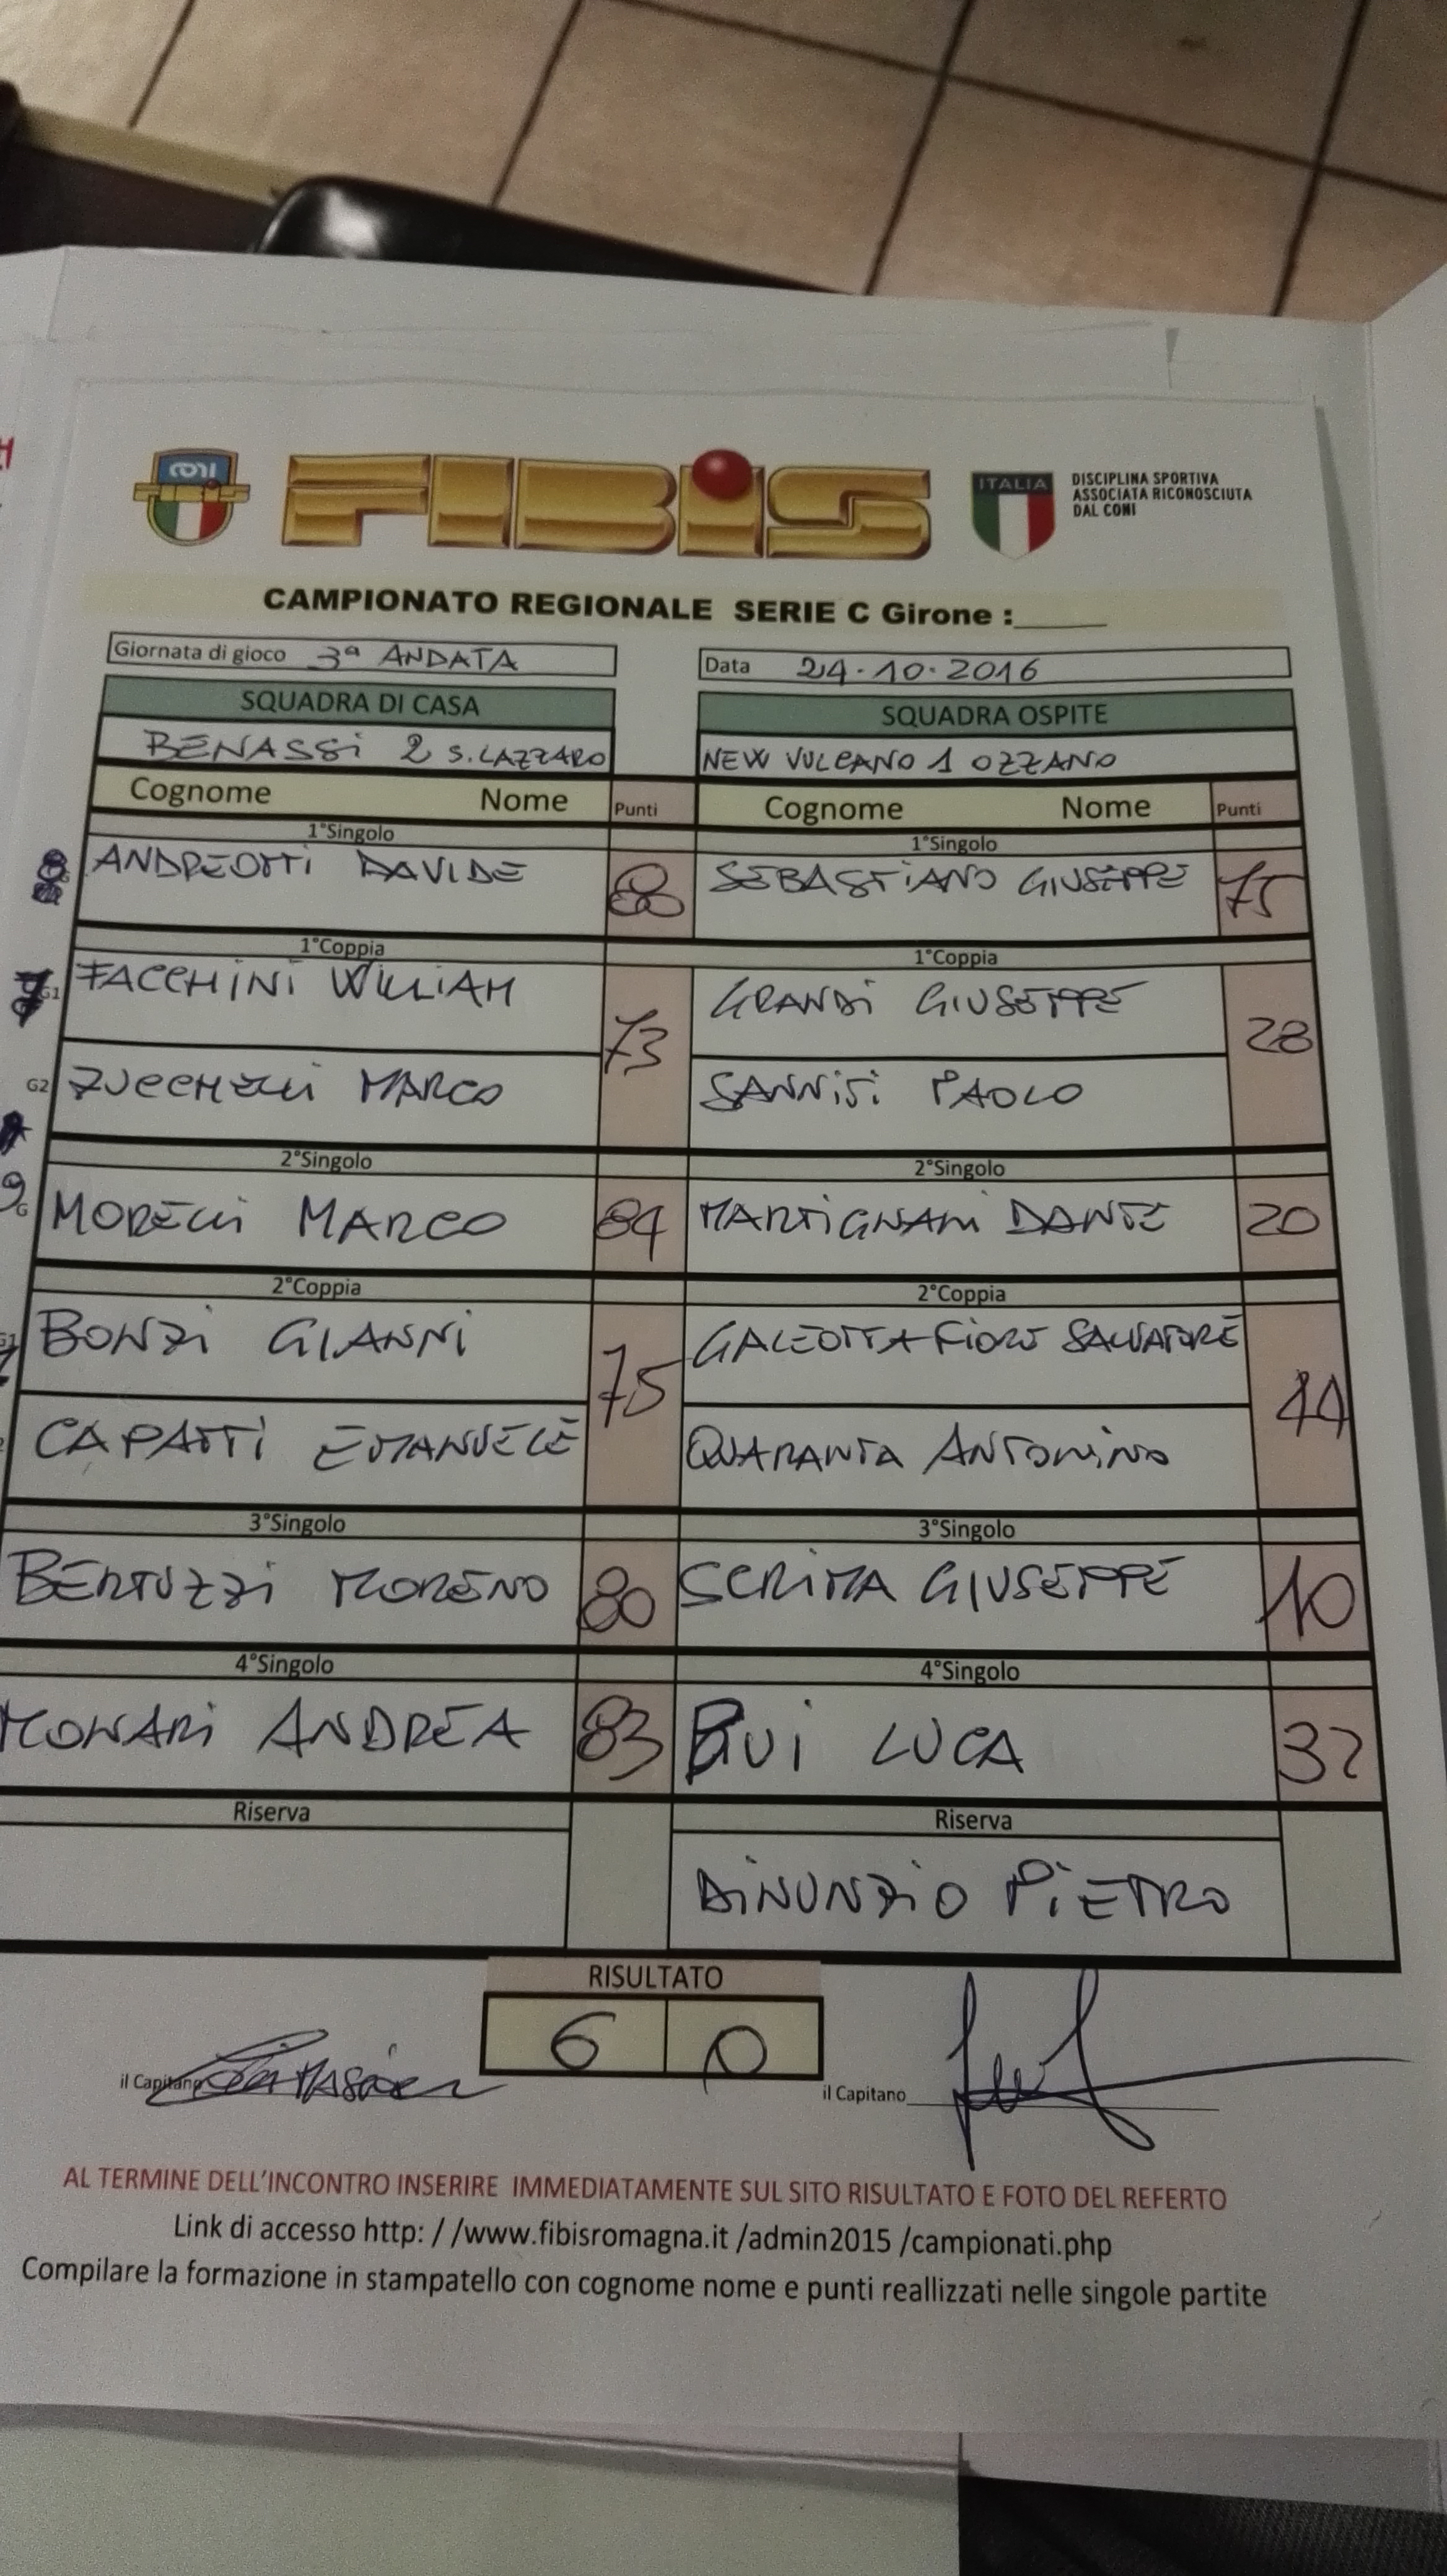 CONI
FIBIS
ITALIA
DISCIPLINA SPORTIVA
ASSOCIATA RICONOSCIUTA
DAL CONI
CAMPIONATO REGIONALE SERIE C Girone :_____
Giornata di gioco 3ª ANDATA
Data 24.10.2016
SQUADRA DI CASA SQUADRA OSPITE
BENASSI 2 S.LAZZARO NEW VULCANO 1 OZZANO
Cognome Nome Punti Cognome Nome Punti
1°Singolo 1°Singolo
ANDREOTTI DAVIDE 88 SEBASTIANO GIUSEPPE 75
1°Coppia 1°Coppia
G1 FACCHINI WILLIAM 73 GRANDI GIUSEPPE 28
G2 ZUCCHELLI MARCO SANNISI PAOLO
2°Singolo 2°Singolo
9 G MORELLI MARCO 84 MARTIGNANI DANTE 20
2°Coppia 2°Coppia
BONZI GIANNI 75 GALEOTTAFIORE SALVATORE 44
CAPATTI EMANUELE QUARANTA ANTONINO
3°Singolo 3°Singolo
BERTUZZI MORENO 80 SCRIMA GIUSEPPE 10
4°Singolo 4°Singolo
MONARI ANDREA 83 BUI LUCA 32
Riserva Riserva
DINUNZIO PIETRO
RISULTATO
6 0
il Capitano
il Capitano
AL TERMINE DELL'INCONTRO INSERIRE IMMEDIATAMENTE SUL SITO RISULTATO E FOTO DEL REFERTO
Link di accesso http: / /www.fibisromagna.it /admin2015 /campionati.php
Compilare la formazione in stampatello con cognome nome e punti reallizzati nelle singole partite